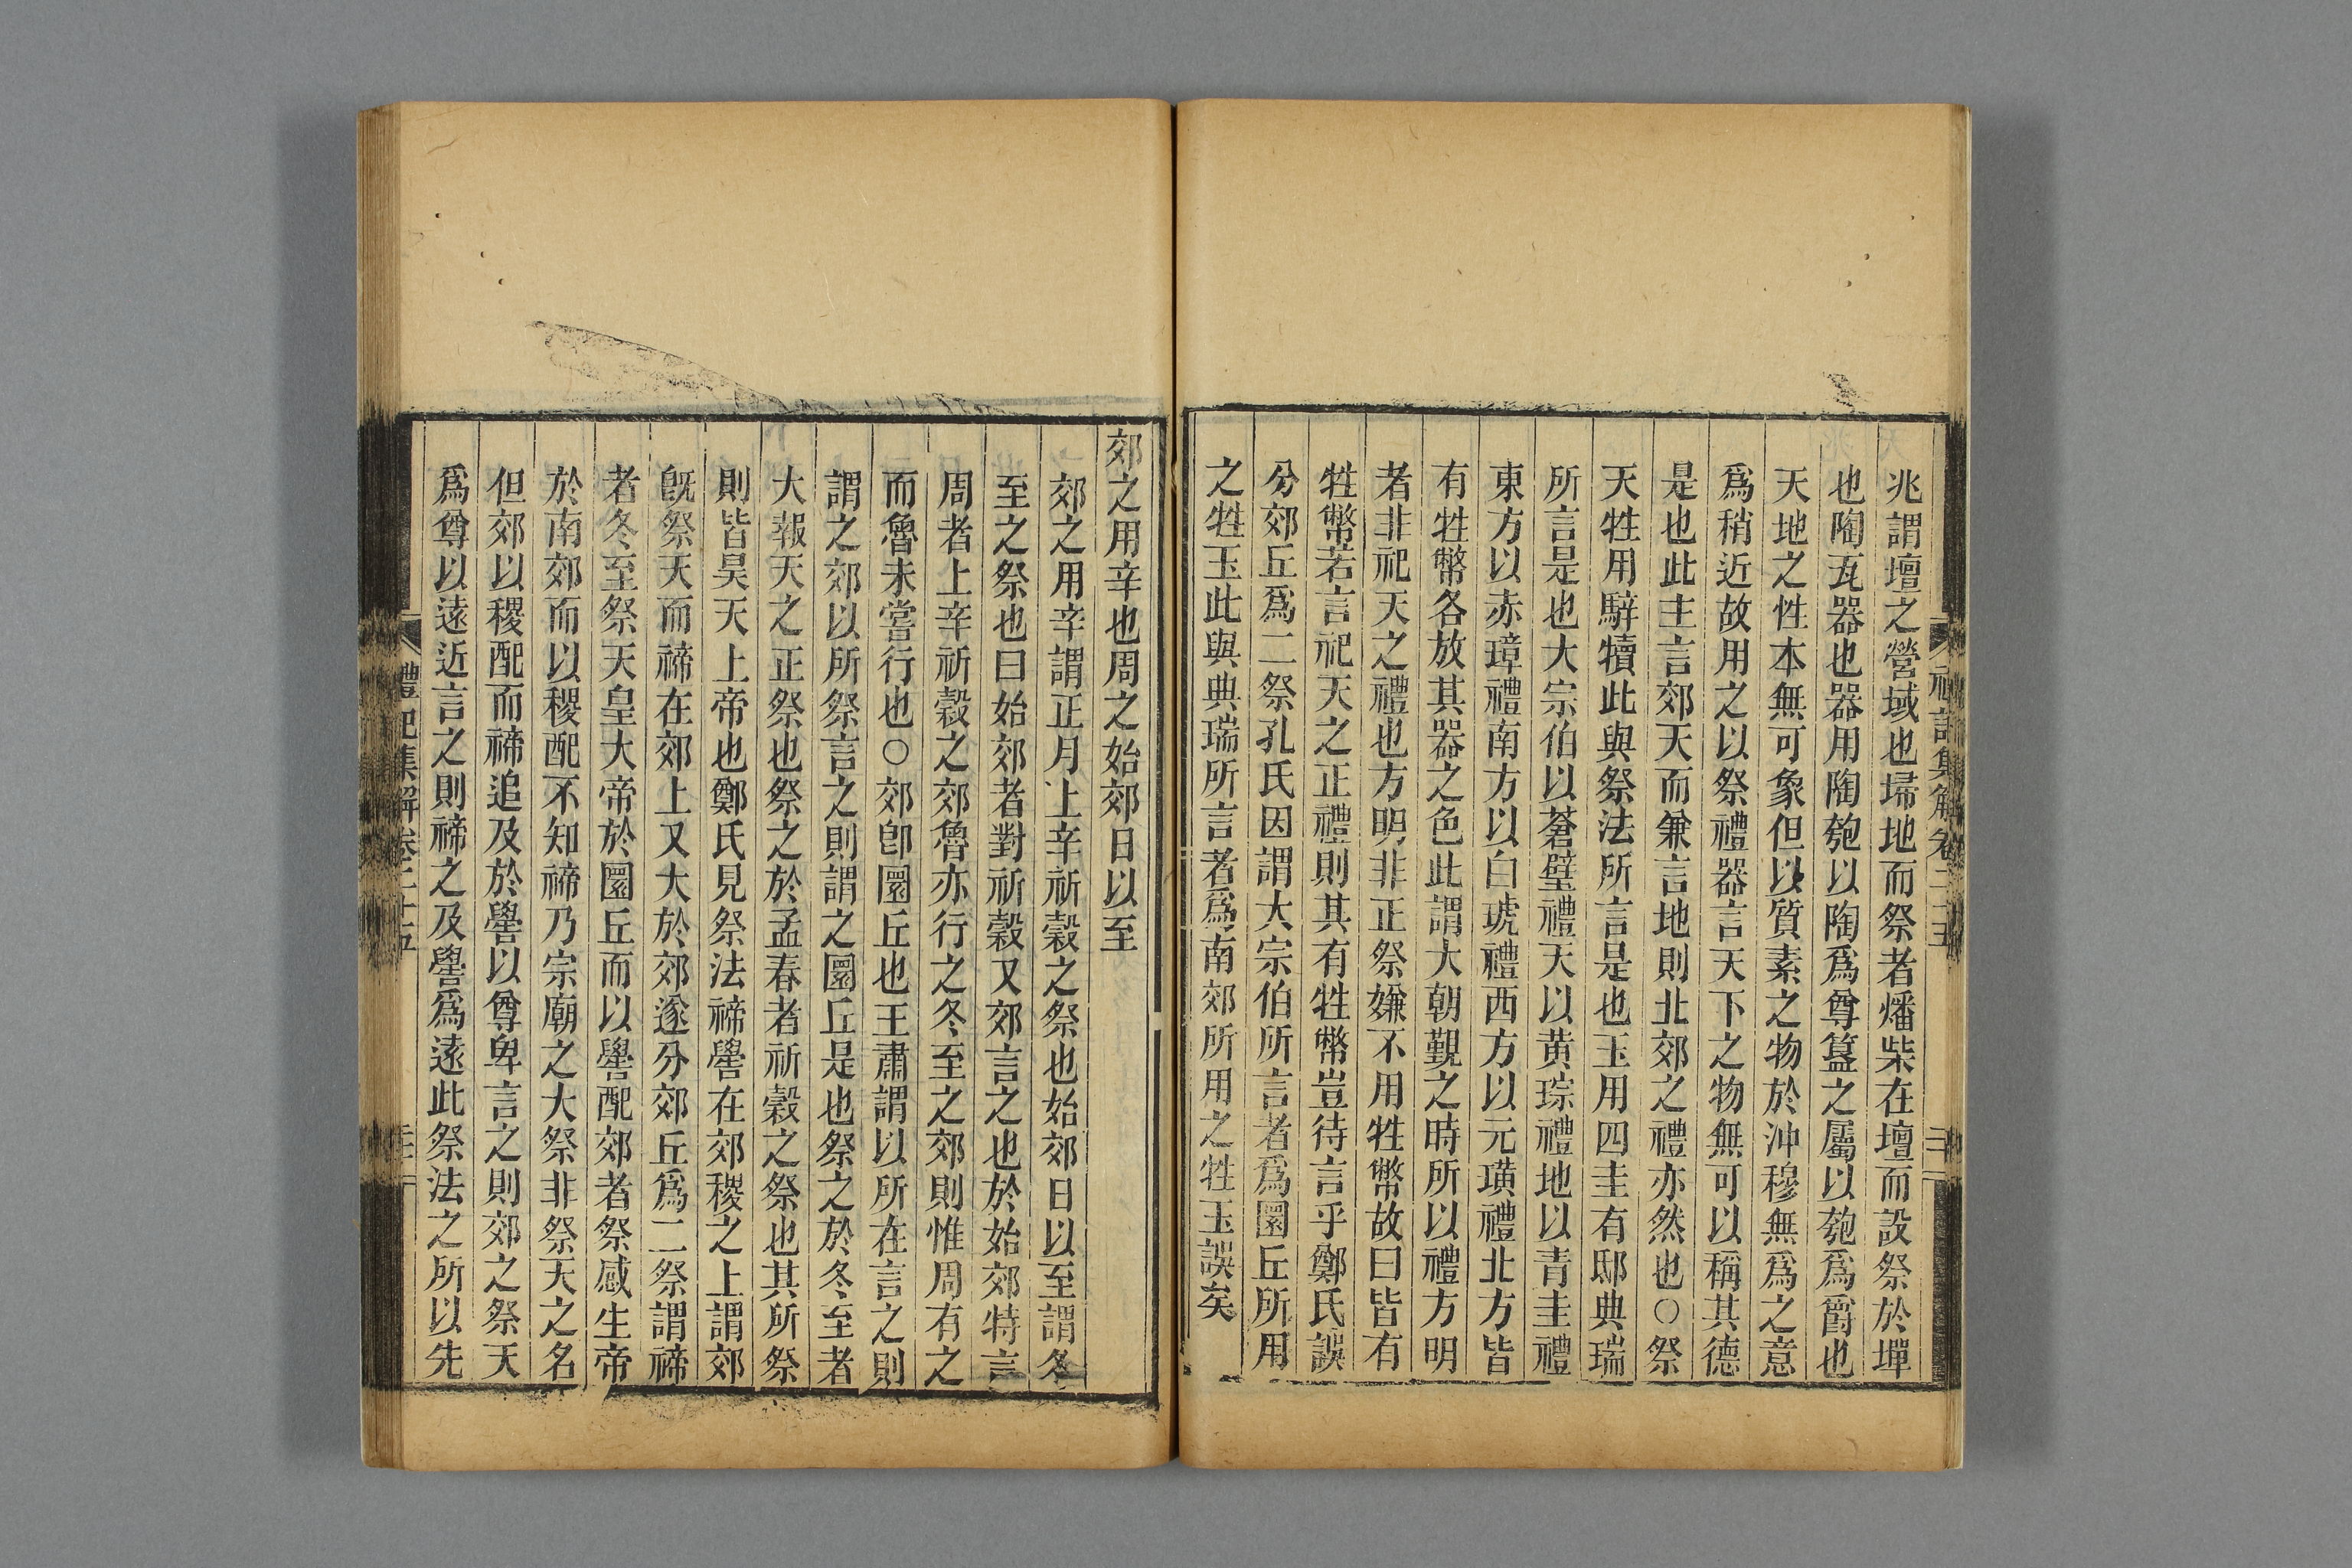 兆謂壇之營域也埽地而祭者燔柴在壇而設祭於墠
也陶瓦器也器用陶匏以陶爲尊簋之屬以匏爲爵也
天地之性本無可象但以質素之物於沖穆無爲之意
爲稍近故用之以祭禮器言天下之物無可以稱其德
是也此主言郊天而兼言地則北郊之禮亦然也○祭
天牲用騂犢此與祭法所言是也玉用四圭有邸典瑞
所言是也大宗伯以蒼璧禮天以黄琮禮地以青圭禮
東方以赤璋禮南方以白琥禮西方以元璜禮北方皆
有牲幣各放其器之色此謂大朝覲之時所以禮方明
者非祀天之禮也方明非正祭嫌不用牲幣故曰皆有
牲幣若言祀天之正禮則其有牲幣豈待言乎鄭氏誤
分郊丘爲二祭孔氏因謂大宗伯所言者爲圜丘所用
之牲玉此與典瑞所言者爲南郊所用之牲玉誤矣
郊之用辛也周之始郊日以至
郊之用辛謂正月上辛祈穀之祭也始郊日以至謂冬
至之祭也曰始郊者對祈穀又郊言之也於始郊特言
周者上辛祈穀之郊魯亦行之冬至之郊則惟周有之
而魯未嘗行也○郊卽圜丘也王肅謂以所在言之則
謂之郊以所祭言之則謂之圜丘是也祭之於冬至者
大報天之正祭也祭之於孟春者祈穀之祭也其所祭
則皆昊天上帝也鄭氏見祭法禘嚳在郊稷之上謂郊
旣祭天而禘在郊上又大於郊遂分郊丘爲二祭謂禘
者冬至祭天皇大帝於圜丘而以嚳配郊者祭感生帝
於南郊而以稷配不知禘乃宗廟之大祭非祭天之名
但郊以稷配而禘追及於嚳以尊卑言之則郊之祭天
爲尊以遠近言之則禘之及嚳爲遠此祭法之所以先
禮記集解卷二十五